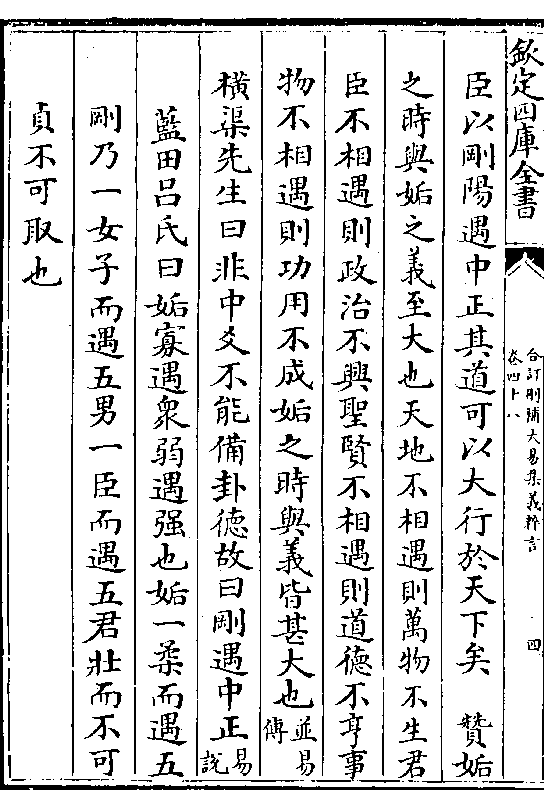 欽定四庫全書
合訂刪補大易集義粹言
卷四十八
四
臣以剛陽遇中正其道可以大行於天下矣　贊姤
之時與姤之義至大也天地不相遇則萬物不生君
臣不相遇則政治不興聖賢不相遇則道德不亨事
物不相遇則功用不成姤之時與義皆甚大也並易
傳
橫渠先生曰非中爻不能備卦德故曰剛遇中正易
說
藍田呂氏曰姤寡遇衆弱遇强也姤一柔而遇五
剛乃一女子而遇五男一臣而遇五君壯而不可
貞不可取也